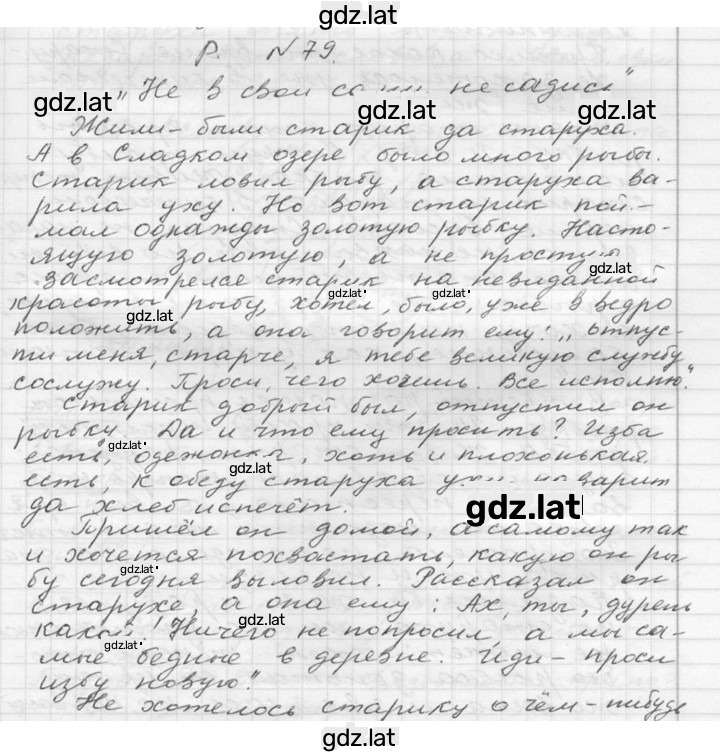 gdz.latl
Р. N 79.
„Не в свои не садись"
gdz.latl gdz.latl gdz.latl
Жили-были старик да старуха.
А в Сладком озере было много рыбы.
Старик ловил рыбу, а старуха ва-
рила уху. Но вот старик пой-
мал однажды золотую рыбку. Насто-
ящую золотую, а не простую
gdz.latl
засмотрелсе старик на невиданной
gdz.latl gdz.latl
красоты рыбу, хотел, было, уже в ведро
gdz.latl
положить, а она говорит ему: „отпус-
ти меня, старче, я тебе великую службу
сослужу. Проси, чего хочешь. Все исполню."
Старик добрый был, отпустил он
рыбку. Да и что ему просить? Изба
gdz.latl
есть, одежонка, хоть и плохонькая,
gdz.latl
есть, к обеду старуха наварит
да хлеб испечёт.
gdz.latl
Пришёл он домой, а самому так
и хочется похвастать, какую он ры-
gdz.latl
бу сегодня выловил. Рассказал он
старухе, а она ему: Ах, ты, дурень
gdz.latl
какой! Ничего не попросил, а мы са-
мые бедные в деревне. Иди-проси
избу новую."
Не хотелось старику о чём-нибудь
gdz.latl